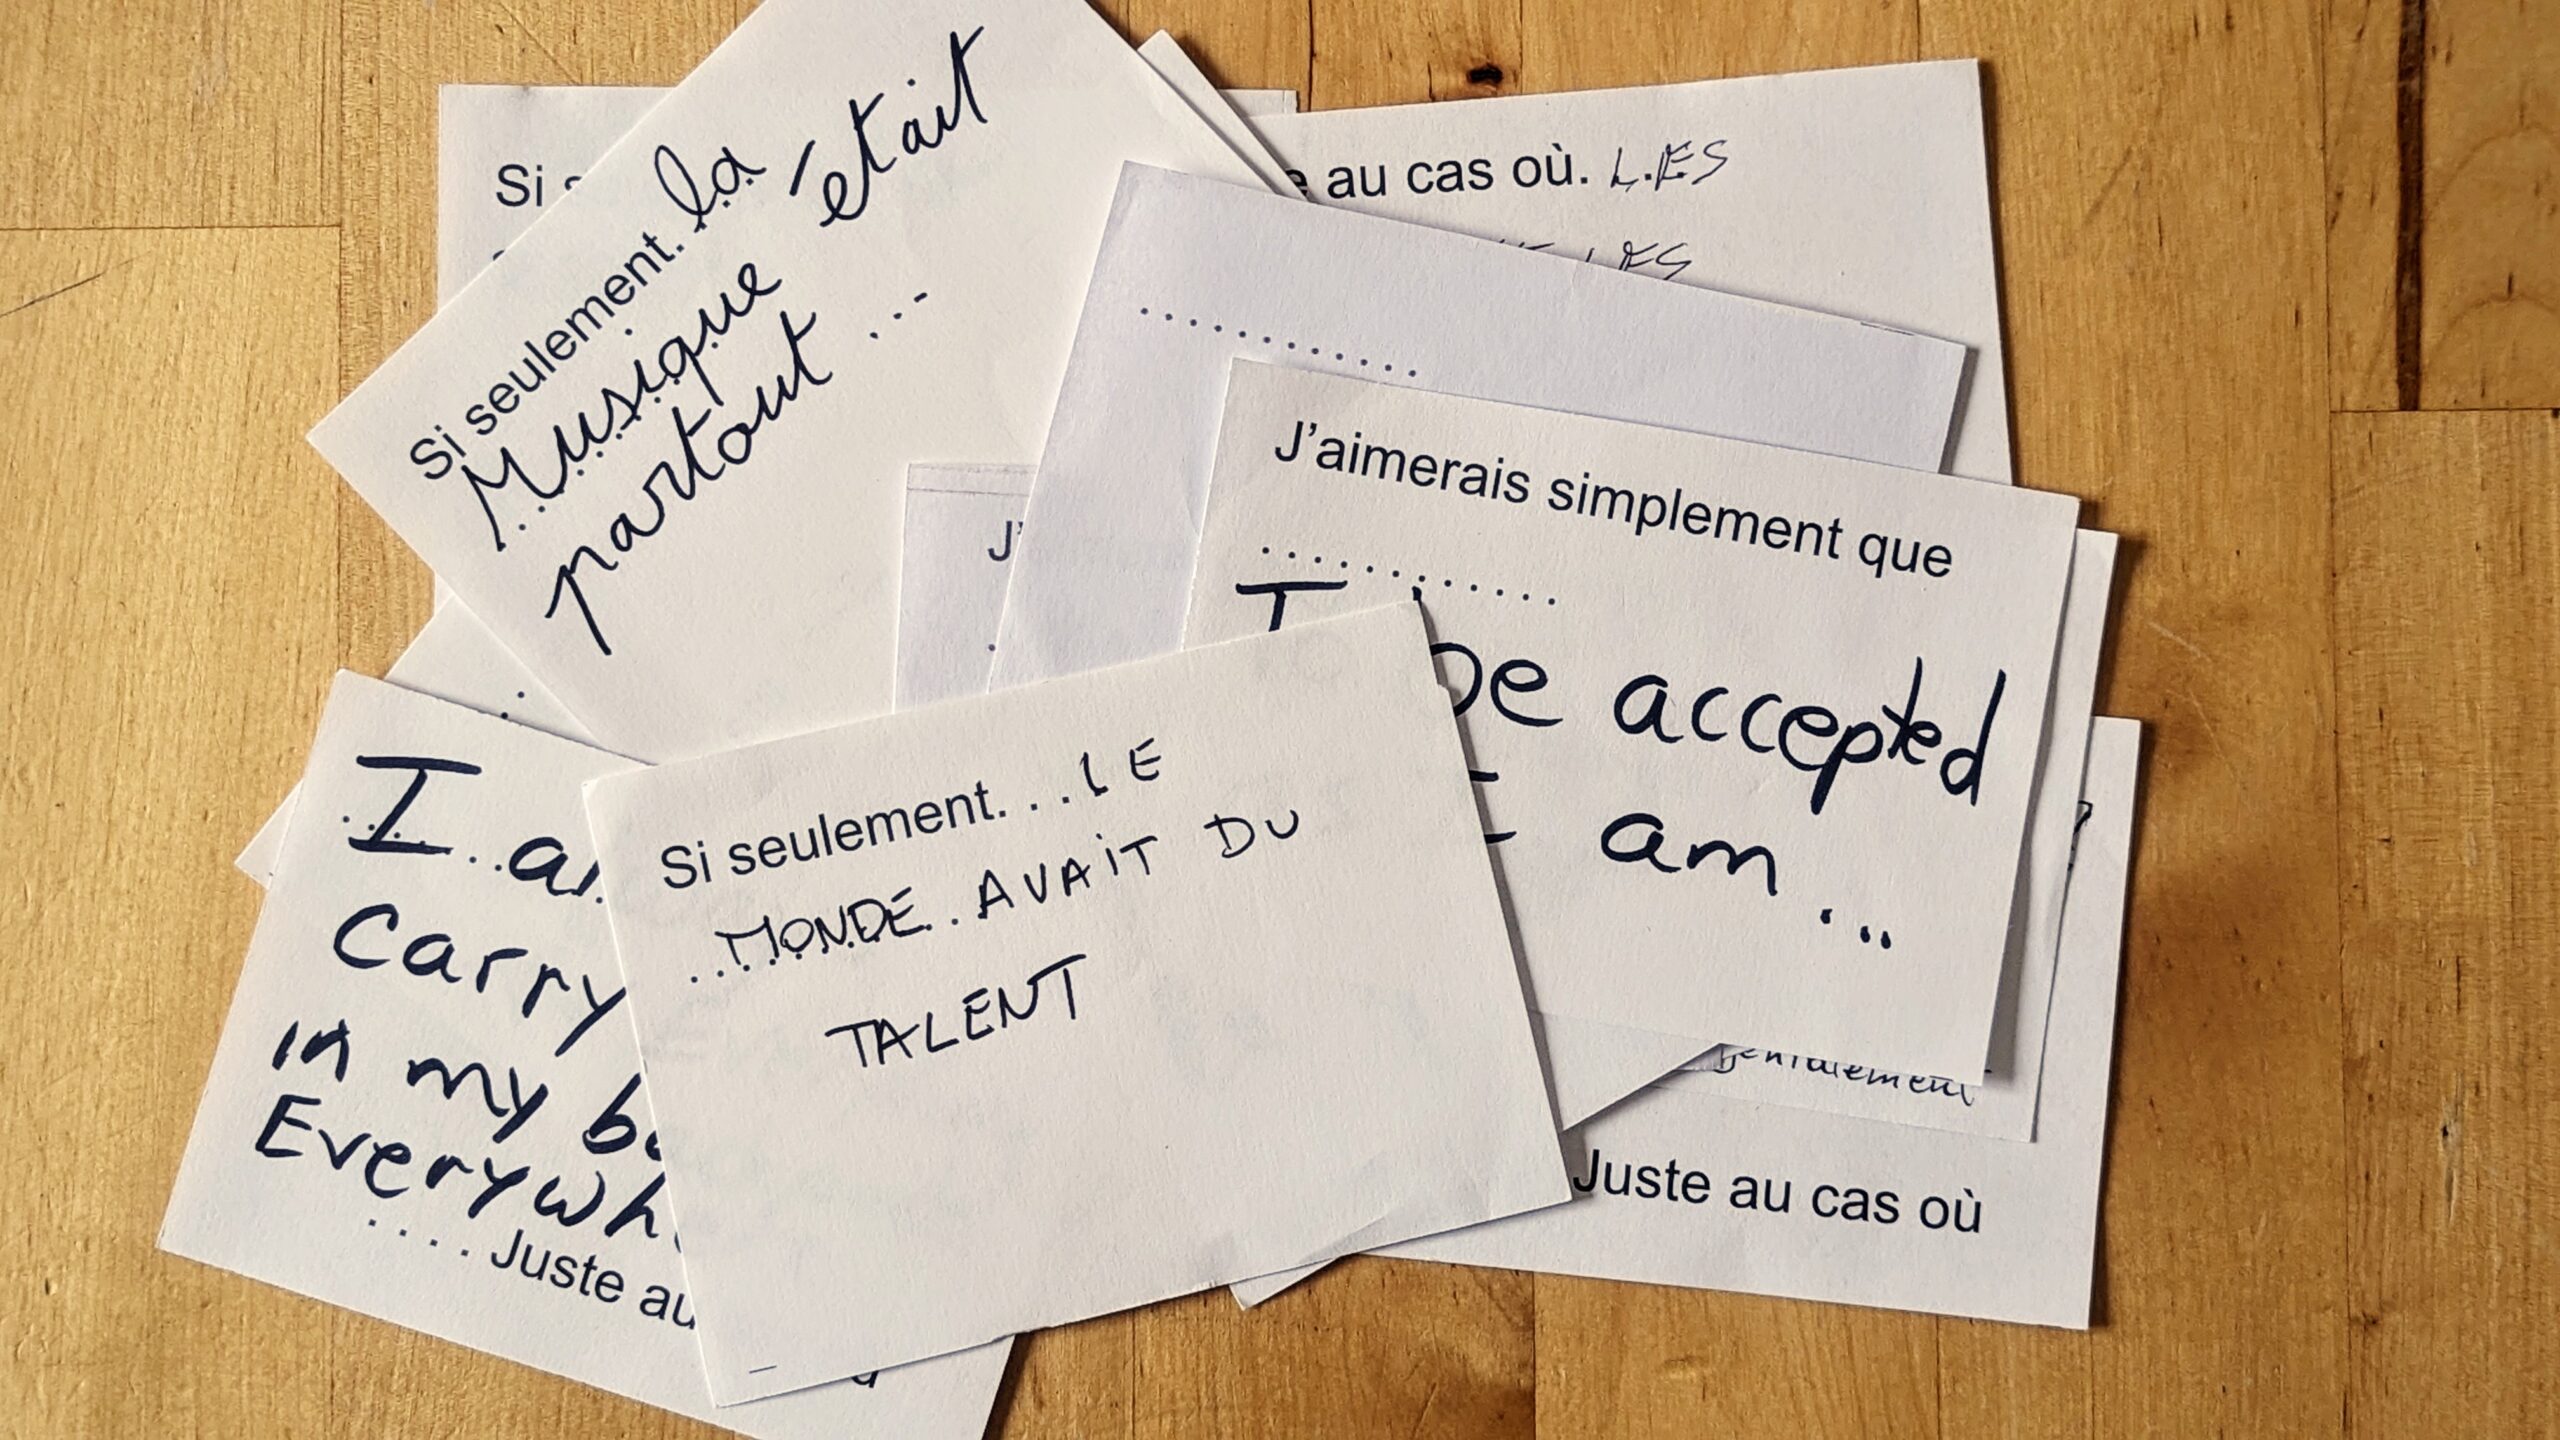 Si
Si seulement. la
Musique était
partout ...
au cas où. LES
LES
...........
J'
J'aimerais simplement que
............
be accepted
I am ...
I
carry
in my
Everywh
.... Juste au
Si seulement. . . . LE
MONDE AVAIT DU
TALENT
Juste au cas où